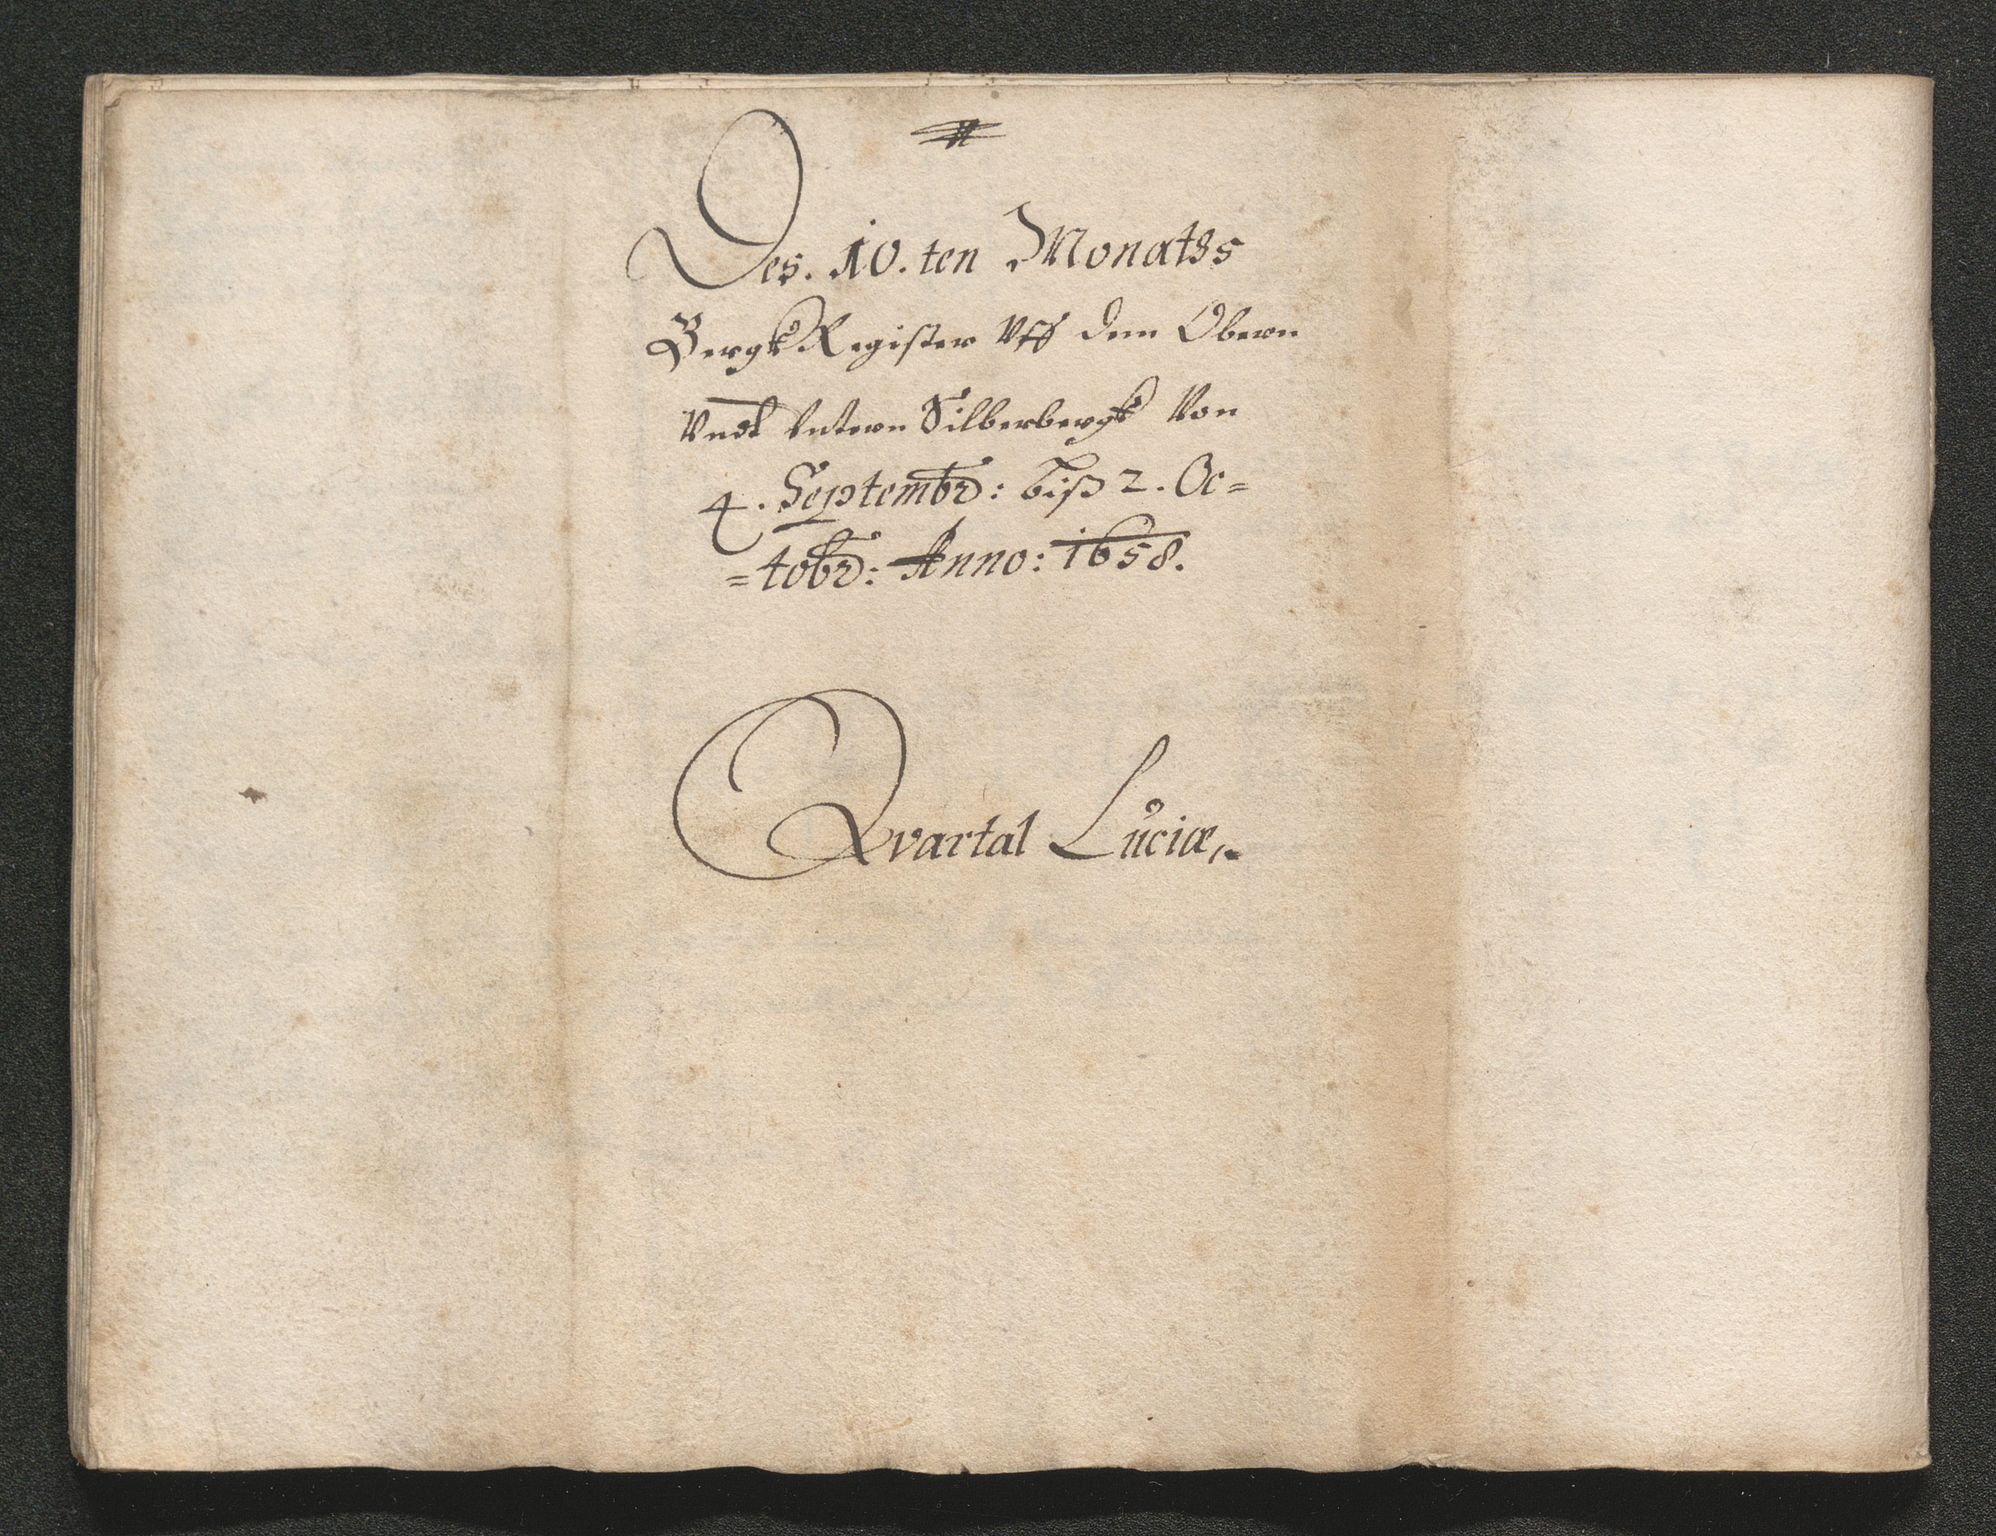 Des. 10. ten Monatss
Bergk Register Vff dem Obern
Vndt Vntern Silberbergk Von
4. Septembr: biß 2. Oc=
=tobr: Anno: 1658.
Qvartal Luciæ,